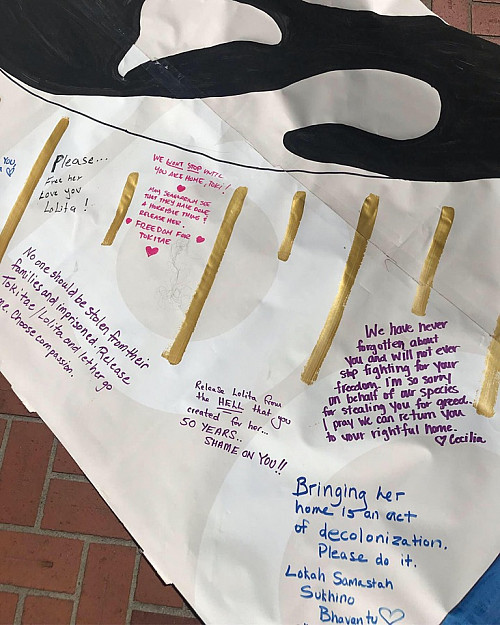 You,
Please...
Free her
Love you
Lolita!
WE WONT STOP UNTIL
YOU ARE HOME, TOKI!
MAY SEAQUARIUM SEE
THAT THEY HAVE DONE
A HORRIBLE THING &
RELEASE HER.
FREEDOM FOR
TOKITAE
No one should be stolen from their
families and imprisoned. Release
Tokitae/Lolita and let her go
Choose compassion.
Release Lolita from
the HELL that you
created for her...
50 YEARS..
SHAME ON YOU!!
We have never
forgotten about
you and will not ever
stop fighting for your
freedom. I'm so sorry
on behalf of our species
for stealing you for greed.
I pray we can return you
to your rightful home.
♡ Cecilia
Bringing her
home is an act
of decolonization.
Please do it.
Lokah Samastah
Sukhino
Bhavantu ♡